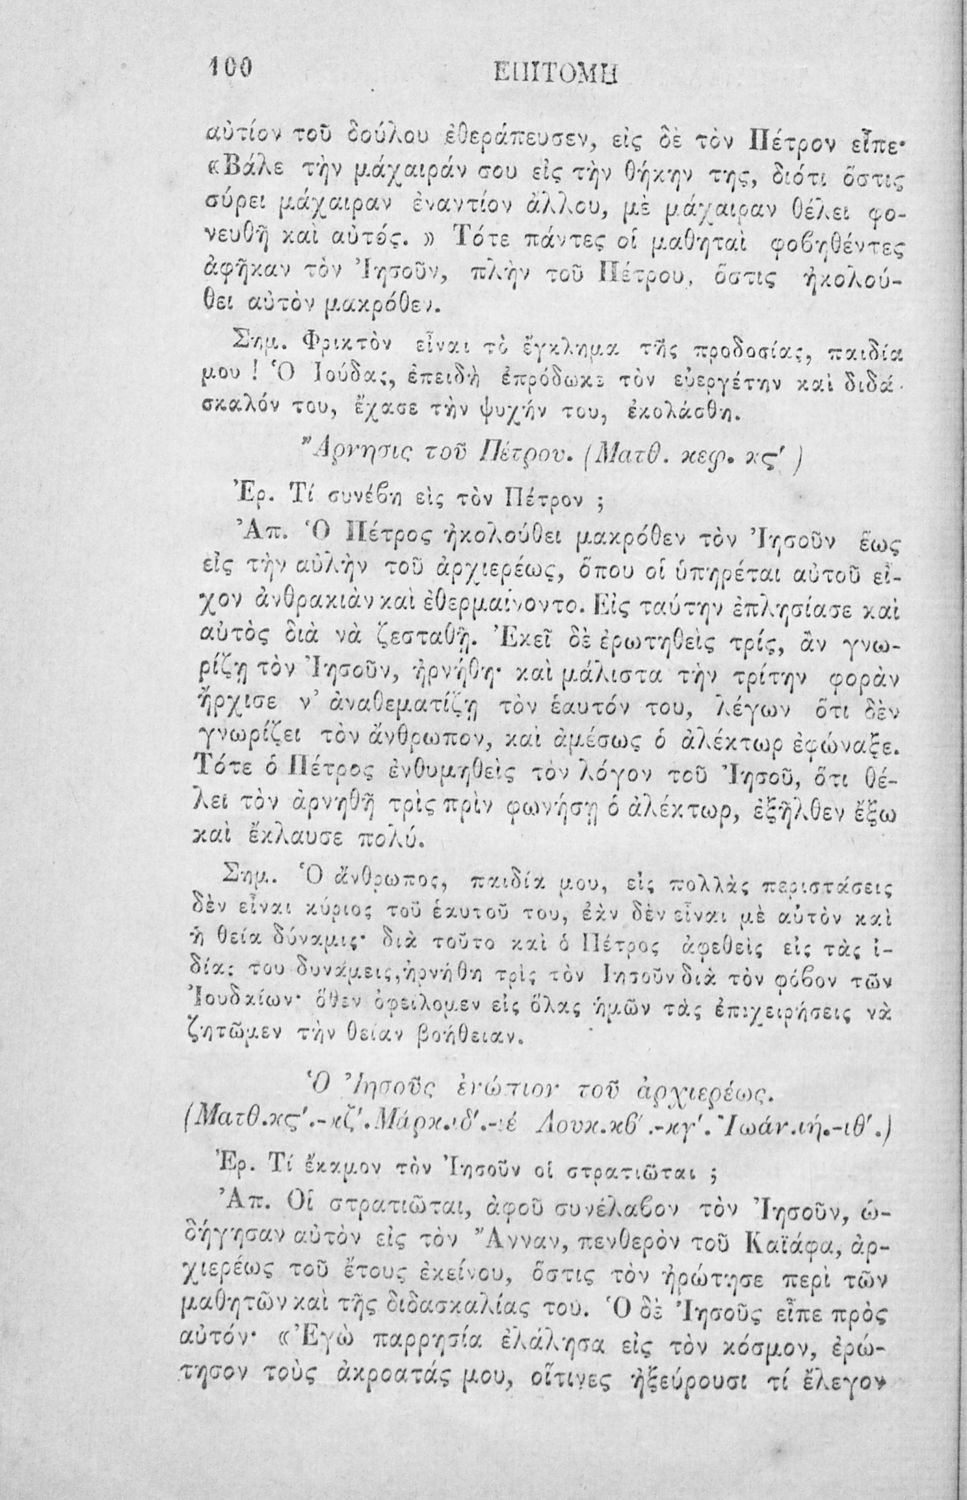 100 ΕΠΙΤΟΜΗ
αὐτίον τοῦ δούλου ἐθεράπευσεν, εἰς δὲ τὸν Πέτρον εἶπε·
«Βάλε τὴν μάχαιράν σου εἰς τὴν θήκην της, διότι ὅστις
σύρει μάχαιραν ἐναντίον ἄλλου, μὲ μάχαιραν θέλει φο-
νευθῆ καὶ αὐτός. » Τότε πάντες οἱ μαθηταὶ φοβηθέντες
ἀφῆκαν τὸν Ἰησοῦν, πλὴν τοῦ Πέτρου, ὅστις ἠκολού-
θει αὐτὸν μακρόθεν.
Σημ. Φρικτὸν εἶναι τὸ ἔγκλημα τῆς προδοσίας, παιδία
μου ! Ὁ Ἰούδας, ἐπειδὴ ἐπρόδωκε τὸν εὐεργέτην καὶ διδά-
σκαλόν του, ἔχασε τὴν ψυχήν του, ἐκολάσθη.
Ἄρνησις τοῦ Πέτρου. (Ματθ. κεφ. κς′ )
Ἐρ. Τί συνέβη εἰς τὸν Πέτρον ;
Ἀπ. Ὁ Πέτρος ἠκολούθει μακρόθεν τὸν Ἰησοῦν ἕως
εἰς τὴν αὐλὴν τοῦ ἀρχιερέως, ὅπου οἱ ὑπηρέται αὐτοῦ εἶ-
χον ἀνθρακιὰν καὶ ἐθερμαίνοντο. Εἰς ταύτην ἐπλησίασε καὶ
αὐτὸς διὰ νὰ ζεσταθῇ. Ἐκεῖ δὲ ἐρωτηθεὶς τρίς, ἂν γνω-
ρίζῃ τὸν Ἰησοῦν, ἠρνήθη· καὶ μάλιστα τὴν τρίτην φορὰν
ἤρχισε ν’ ἀναθεματίζῃ τὸν ἑαυτόν του, λέγων ὅτι δὲν
γνωρίζει τὸν ἄνθρωπον, καὶ ἀμέσως ὁ ἀλέκτωρ ἐφώναξε.
Τότε ὁ Πέτρος ἐνθυμηθεὶς τὸν λόγον τοῦ Ἰησοῦ, ὅτι θέ-
λει τὸν ἀρνηθῆ τρὶς πρὶν φωνήσῃ ὁ ἀλέκτωρ, ἐξῆλθεν ἔξω
καὶ ἔκλαυσε πολύ.
Σημ. Ὁ ἄνθρωπος, παιδία μου, εἰς πολλὰς περιστάσεις
δὲν εἶναι κύριος τοῦ ἑαυτοῦ του, ἐὰν δὲν εἶναι μὲ αὐτὸν καὶ
ἡ θεία δύναμις· διὰ τοῦτο καὶ ὁ Πέτρος ἀφεθεὶς εἰς τὰς ἰ-
δίας του δυνάμεις, ἠρνήθη τρὶς τὸν Ἰησοῦν διὰ τὸν φόβον τῶν
Ἰουδαίων· ὅθεν ὀφείλομεν εἰς ὅλας ἡμῶν τὰς ἐπιχειρήσεις νὰ
ζητῶμεν τὴν θείαν βοήθειαν.
Ὁ Ἰησοῦς ἐνώπιον τοῦ ἀρχιερέως.
(Ματθ.κς′.-κζ′.Μάρκ.ιδ′.-ιέ Λουκ.κβ′.-κγ′. Ἰωάν.ιή.-ιθ′.)
Ἐρ. Τί ἔκαμον τὸν Ἰησοῦν οἱ στρατιῶται ;
Ἀπ. Οἱ στρατιῶται, ἀφοῦ συνέλαβον τὸν Ἰησοῦν, ὡ-
δήγησαν αὐτὸν εἰς τὸν Ἄνναν, πενθερὸν τοῦ Καϊάφα, ἀρ-
χιερέως τοῦ ἔτους ἐκείνου, ὅστις τὸν ἠρώτησε περὶ τῶν
μαθητῶν καὶ τῆς διδασκαλίας του. Ὁ δὲ Ἰησοῦς εἶπε πρὸς
αὐτόν· «Ἐγὼ παρρησία ἐλάλησα εἰς τὸν κόσμον, ἐρώ-
τησον τοὺς ἀκροατάς μου, οἵτινες ἠξεύρουσι τί ἔλεγον